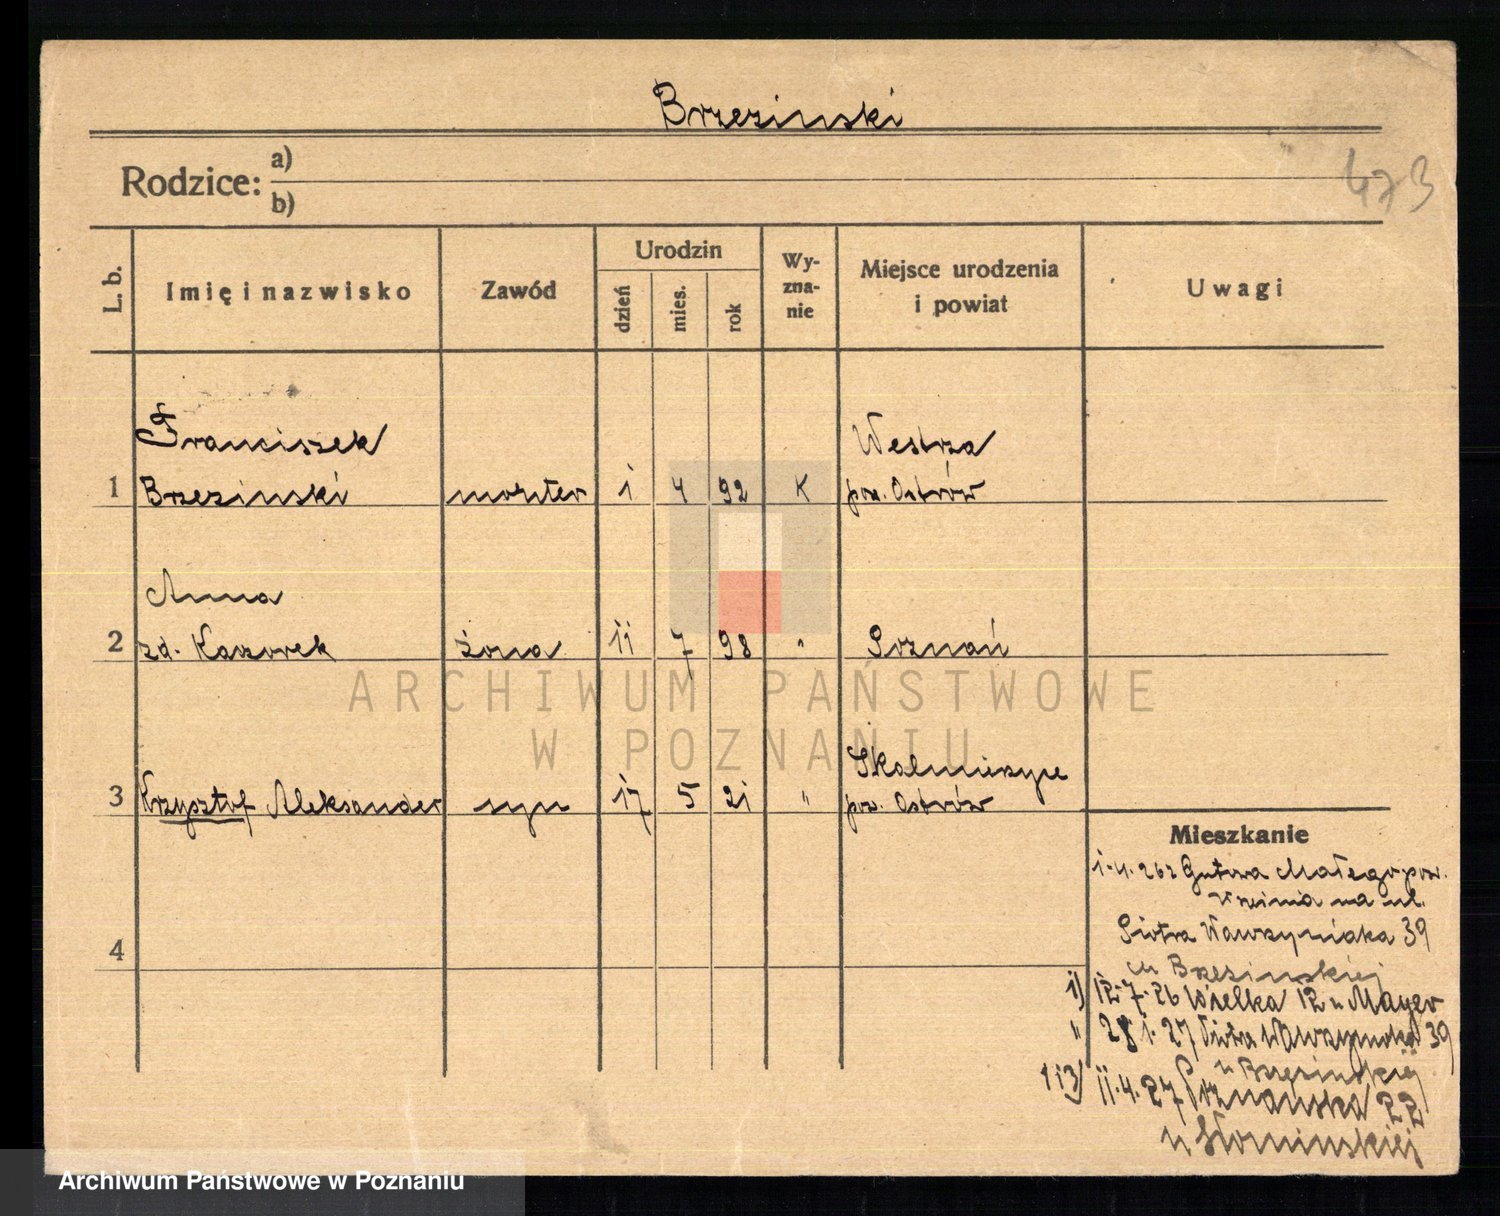 Brzezinski
473
Rodzice: a)
b)
L. b.
Imię i nazwisko
Zawód
Urodzin
dzień
mies.
rok
Wy-
zna-
nie
Miejsce urodzenia
i powiat
Uwagi
Franciszek
Westrza
1 Brzezinski monter 1 4 92 K pow. Ostrów
Anna
2 zd. Kaczorek żona 11 7 98 " Poznań
Skalmierzyce
3 Krzysztof Aleksander syn 17 5 21 " pow. Ostrów
4
Mieszkanie
1.4.26 z Gutowa Małego pow.
Września na ul.
Piotra Wawrzyniaka 39
u Brzezinskiej
1) 12.7.26 Wielka 12 u Mayer
" 28.1.27 Piotra Wawrzyniaka 39
u Brzezinskiej
1 i 3) 11.4.27 Poznańska 22
u Słominskiej
ARCHIWUM PAŃSTWOWE
W POZNANIU
Archiwum Państwowe w Poznaniu